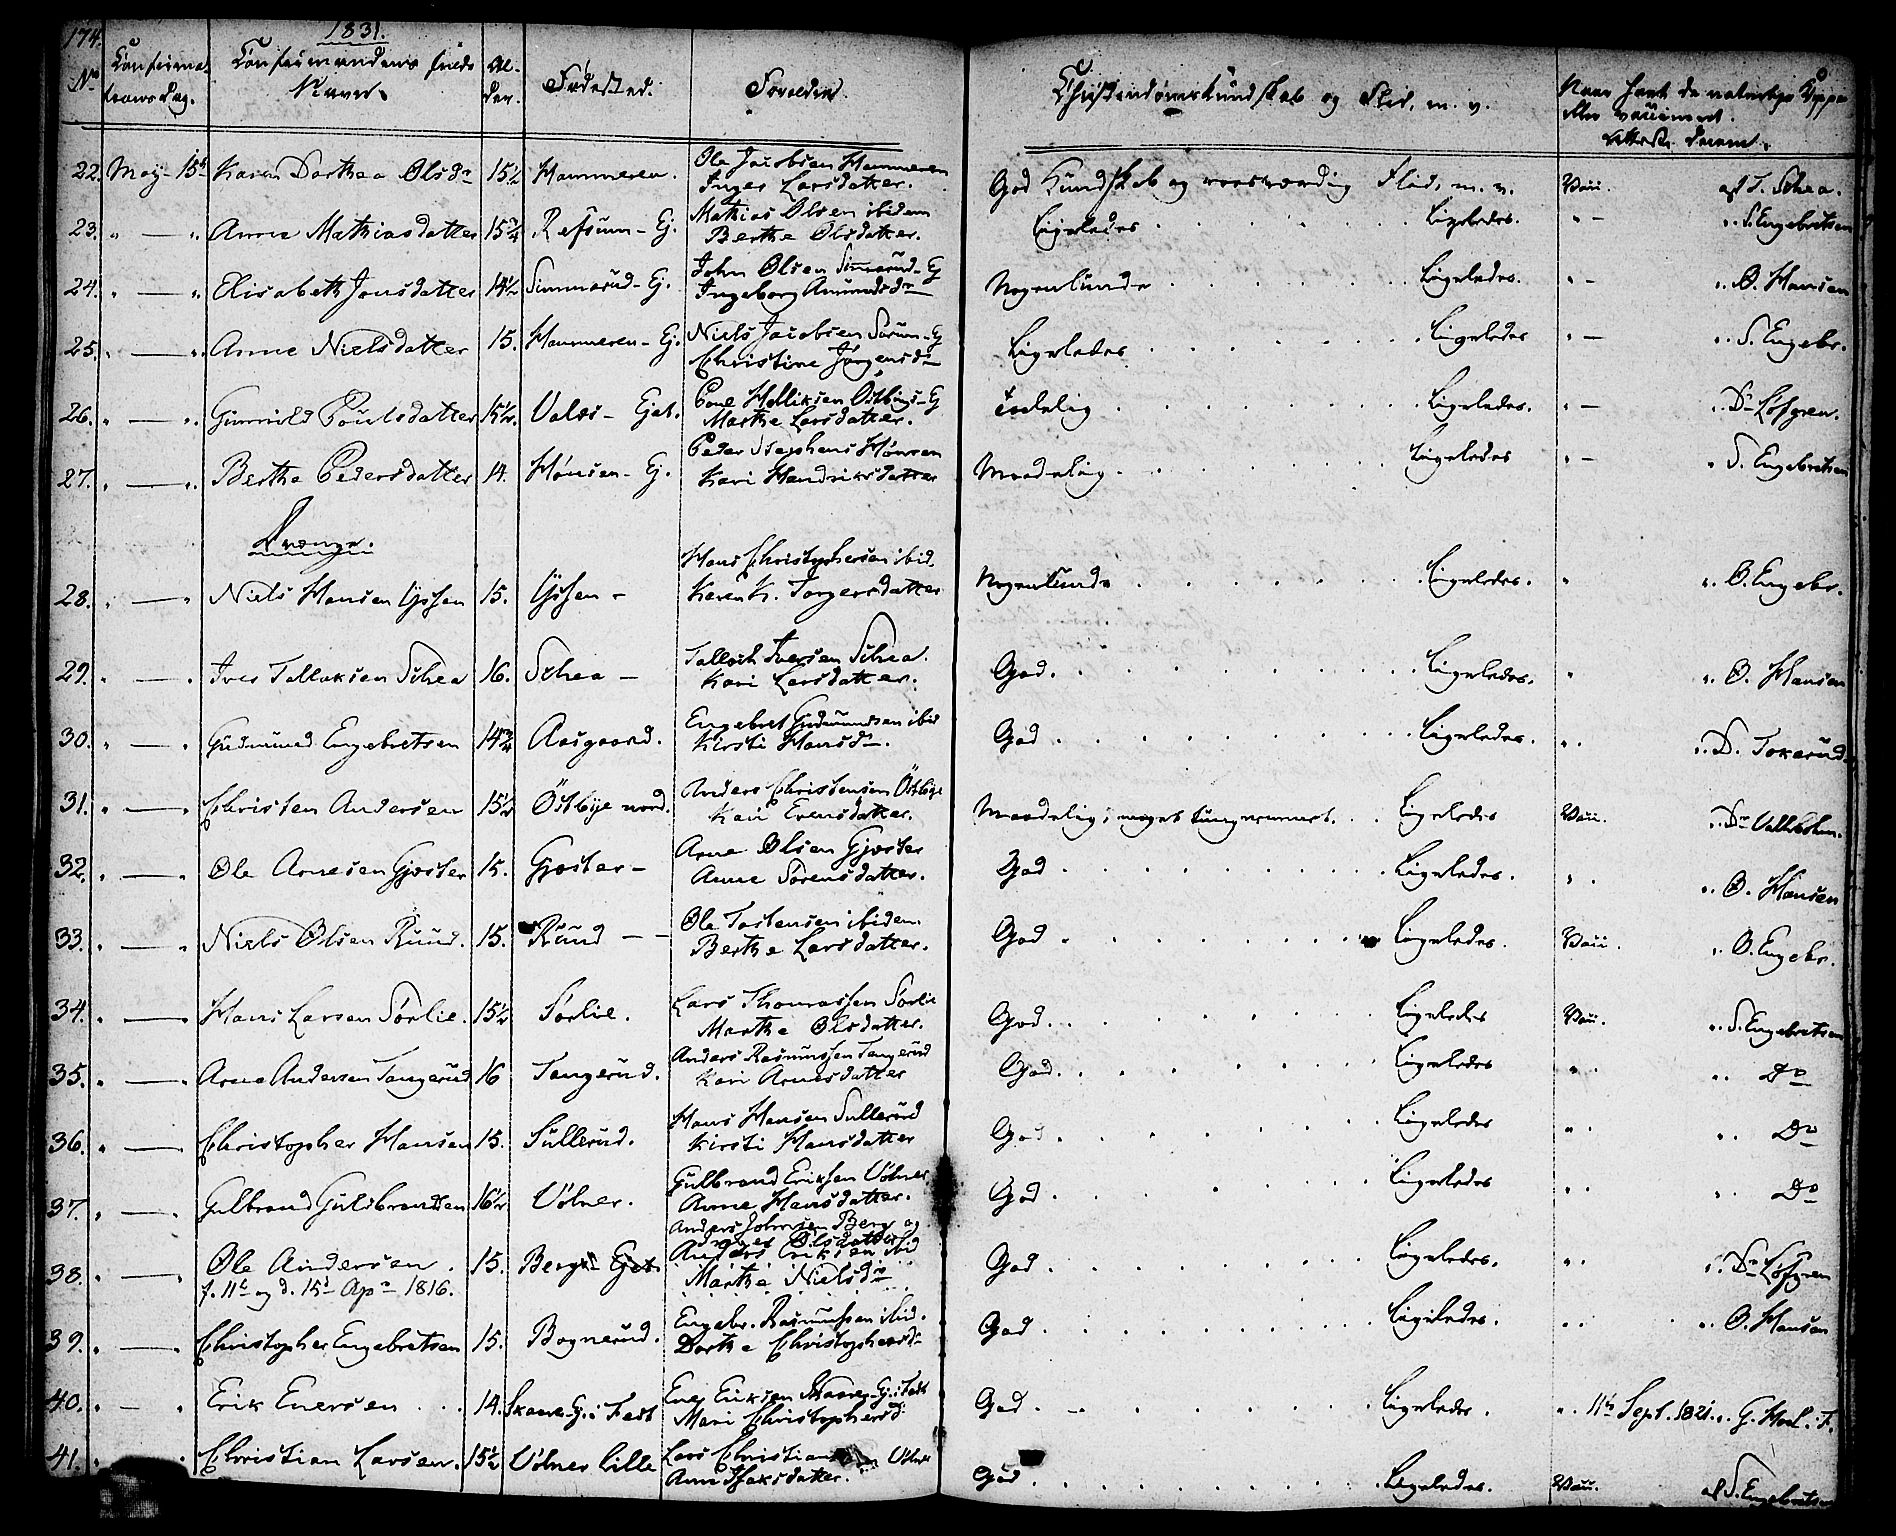 174.
1831.
No
Confirma-
tions Dag.
Confirmandens fulde
Navn.
Al-
der.
Fødested.
Forældre.
Christendomskundskab og Flid, m. v.
Naar havt de naturlige Kopper
eller vaccineret.
Attest derom.
22. May 15de Karen Dorthea Olsdr 15½ Hammeren. Ole Jacobsen Hammeren
Inger Larsdatter. God Kundskab og roesværdig Flid, m. v. Vacc. af T. Schea.
23. " — " Anne Mathiasdatter 15¾ Refsum - Ej. Mathias Olsen ibidem
Berthe Olsdatter. Ligeledes . . . Ligeledes. " — " S. Engebretsen
24. " — " Elisabeth Jonsdatter 14½ Simmarud - Ej. John Olsen Simmarud - Ej
Ingeborg Amundsdr Nogenlunde . . . Ligeledes. " — " O. Hansen
25. " — " Anne Nielsdatter 15. Hammeren - Ej. Niels Jacobsen Sørum - Ej
Christine Jørgensdr Ligeledes . . . Ligeledes " — " S. Engebr.
26. " — " Gunnild Poulsdatter 15½. Valøs - Ejet. Poul Helliksen Østbye - Ej
Marthe Larsdatter. Taalelig . . . Ligeledes. " — " Dr Løfgren.
27. " — " Berthe Pedersdatter 14. Hønsen - Ej. Peder Stephens Hønsen
Kari Hendriksdatter Maadelig . . . Ligeledes " — " S. Engebretsen
Drænge.
28. " — " Niels Hansen Gjssen 15. Gjssen - Hans Christophersen ibid.
Karen K. Torgersdatter Nogenlunde . . . Ligeledes. " " O. Engebr.
29. " — " Iver Tallaksen Schea 16. Schea — Tallach Iversen Schea.
Kari Larsdatter. God. . . . Ligeledes. " " O. Hansen
30. " — " Gudmund Engebretsen 14¾ Aasgaard. Engebret Gudmundsen ibid
Kirsti Hansdr. God . . . Ligeledes. " " D. Tokerud
31. " — " Christen Andersen 15½ Østbye nord. Anders Christensen Østbye
Kari Evensdatter. Maadelig, meget tungnemmet. . . Ligeledes Vacc. " Dr Vallebolm.
32. " — " Ole Arnesen Gjøster 15. Gjøster — Arne Olsen Gjøster
Anne Sørensdatter. God . . . Ligeledes. " " O. Hansen
33. " — " Niels Olsen Ruud. 15. Ruud — Ole Torstensen ibidem
Berthe Larsdatter. God . . . Ligeledes. Vacc. " O. Engebr.
34. " — " Hans Larsen Sørlie. 15½ Sørlie. Lars Thomassen Sørlie
Marthe Olsdatter. God . . . Ligeledes Vacc. " S. Engebretsen
35. " — " Arne Andersen Tangerud 16 Tangerud. Anders Rasmussen Tangerud
Kari Arnesdatter God. . . . Ligeledes " " Do
36. " — " Christopher Hansen 15. Sullerud. Hans Hansen Sullerud
Kirsti Hansdatter God. . . . Ligeledes " " Do
37. " — " Gulbrand Gulbrandsen 16½ Vølner. Gulbrand Eriksen Vølner
Anne Hansdatter. God . . . Ligeledes " " Do
38. " — " Ole Andersen. 15. Berg - Ejet Anders Johnsen Berg og
Inger Olsdatter
Anders Eriksen ibid
Marthe Nielsdr God . . . Ligeledes. " " Dr Løfgren
f. 11te og d. 15de Apr 1816.
39. " — " Christopher Engebretsen 15. Bognerud. Engebr. Rasmussen ibid.
Dorthe Christophersdr God . . . Ligeledes. " " O. Hansen
40. " — " Erik Enersen . . 14. Skaarer - Ej. i Fedt Ener Eriksen Skaarer - Ej. i Fedt
Mari Christophersd. God . . . Ligeledes. " 11te Sept. 1821. G. Hvel. i F.
41. " " Christian Larsen. 15½ Vølner lille Lars Christiansen Vølner
Anne Isaksdatter. God . . . Ligeledes. Vacc. af S. Engebretsen